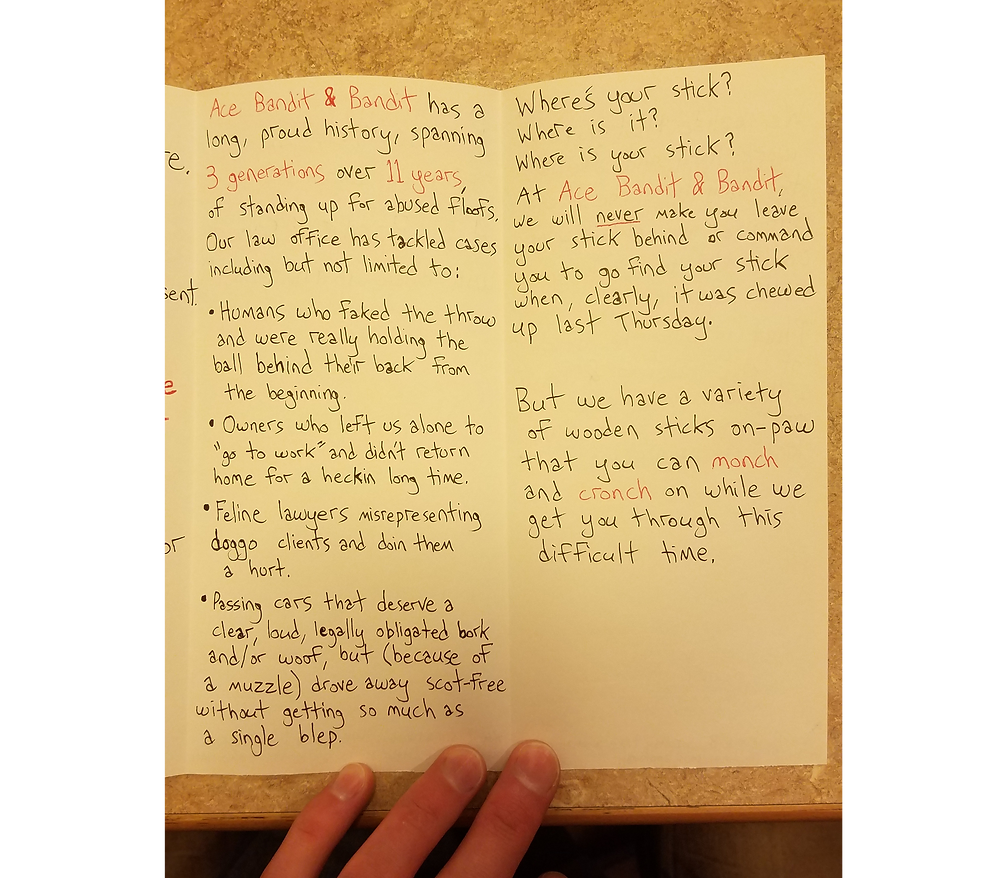 re.
sent.
e
or
Ace Bandit & Bandit has a
long, proud history, spanning
3 generations over 11 years,
of standing up for abused floofs.
Our law office has tackled cases
including but not limited to:
• Humans who faked the throw
and were really holding the
ball behind their back from
the beginning.
• Owners who left us alone to
"go to work" and didn't return
home for a heckin long time.
• Feline lawyers misrepresenting
doggo clients and doin them
a hurt.
• Passing cars that deserve a
clear, loud, legally obligated bork
and/or woof, but (because of
a muzzle) drove away scot-free
without getting so much as
a single blep.
Where's your stick?
Where is it?
Where is your stick?
At Ace Bandit & Bandit,
we will never make you leave
your stick behind or command
you to go find your stick
when, clearly, it was chewed
up last Thursday.
But we have a variety
of wooden sticks on-paw
that you can monch
and cronch on while we
get you through this
difficult time.